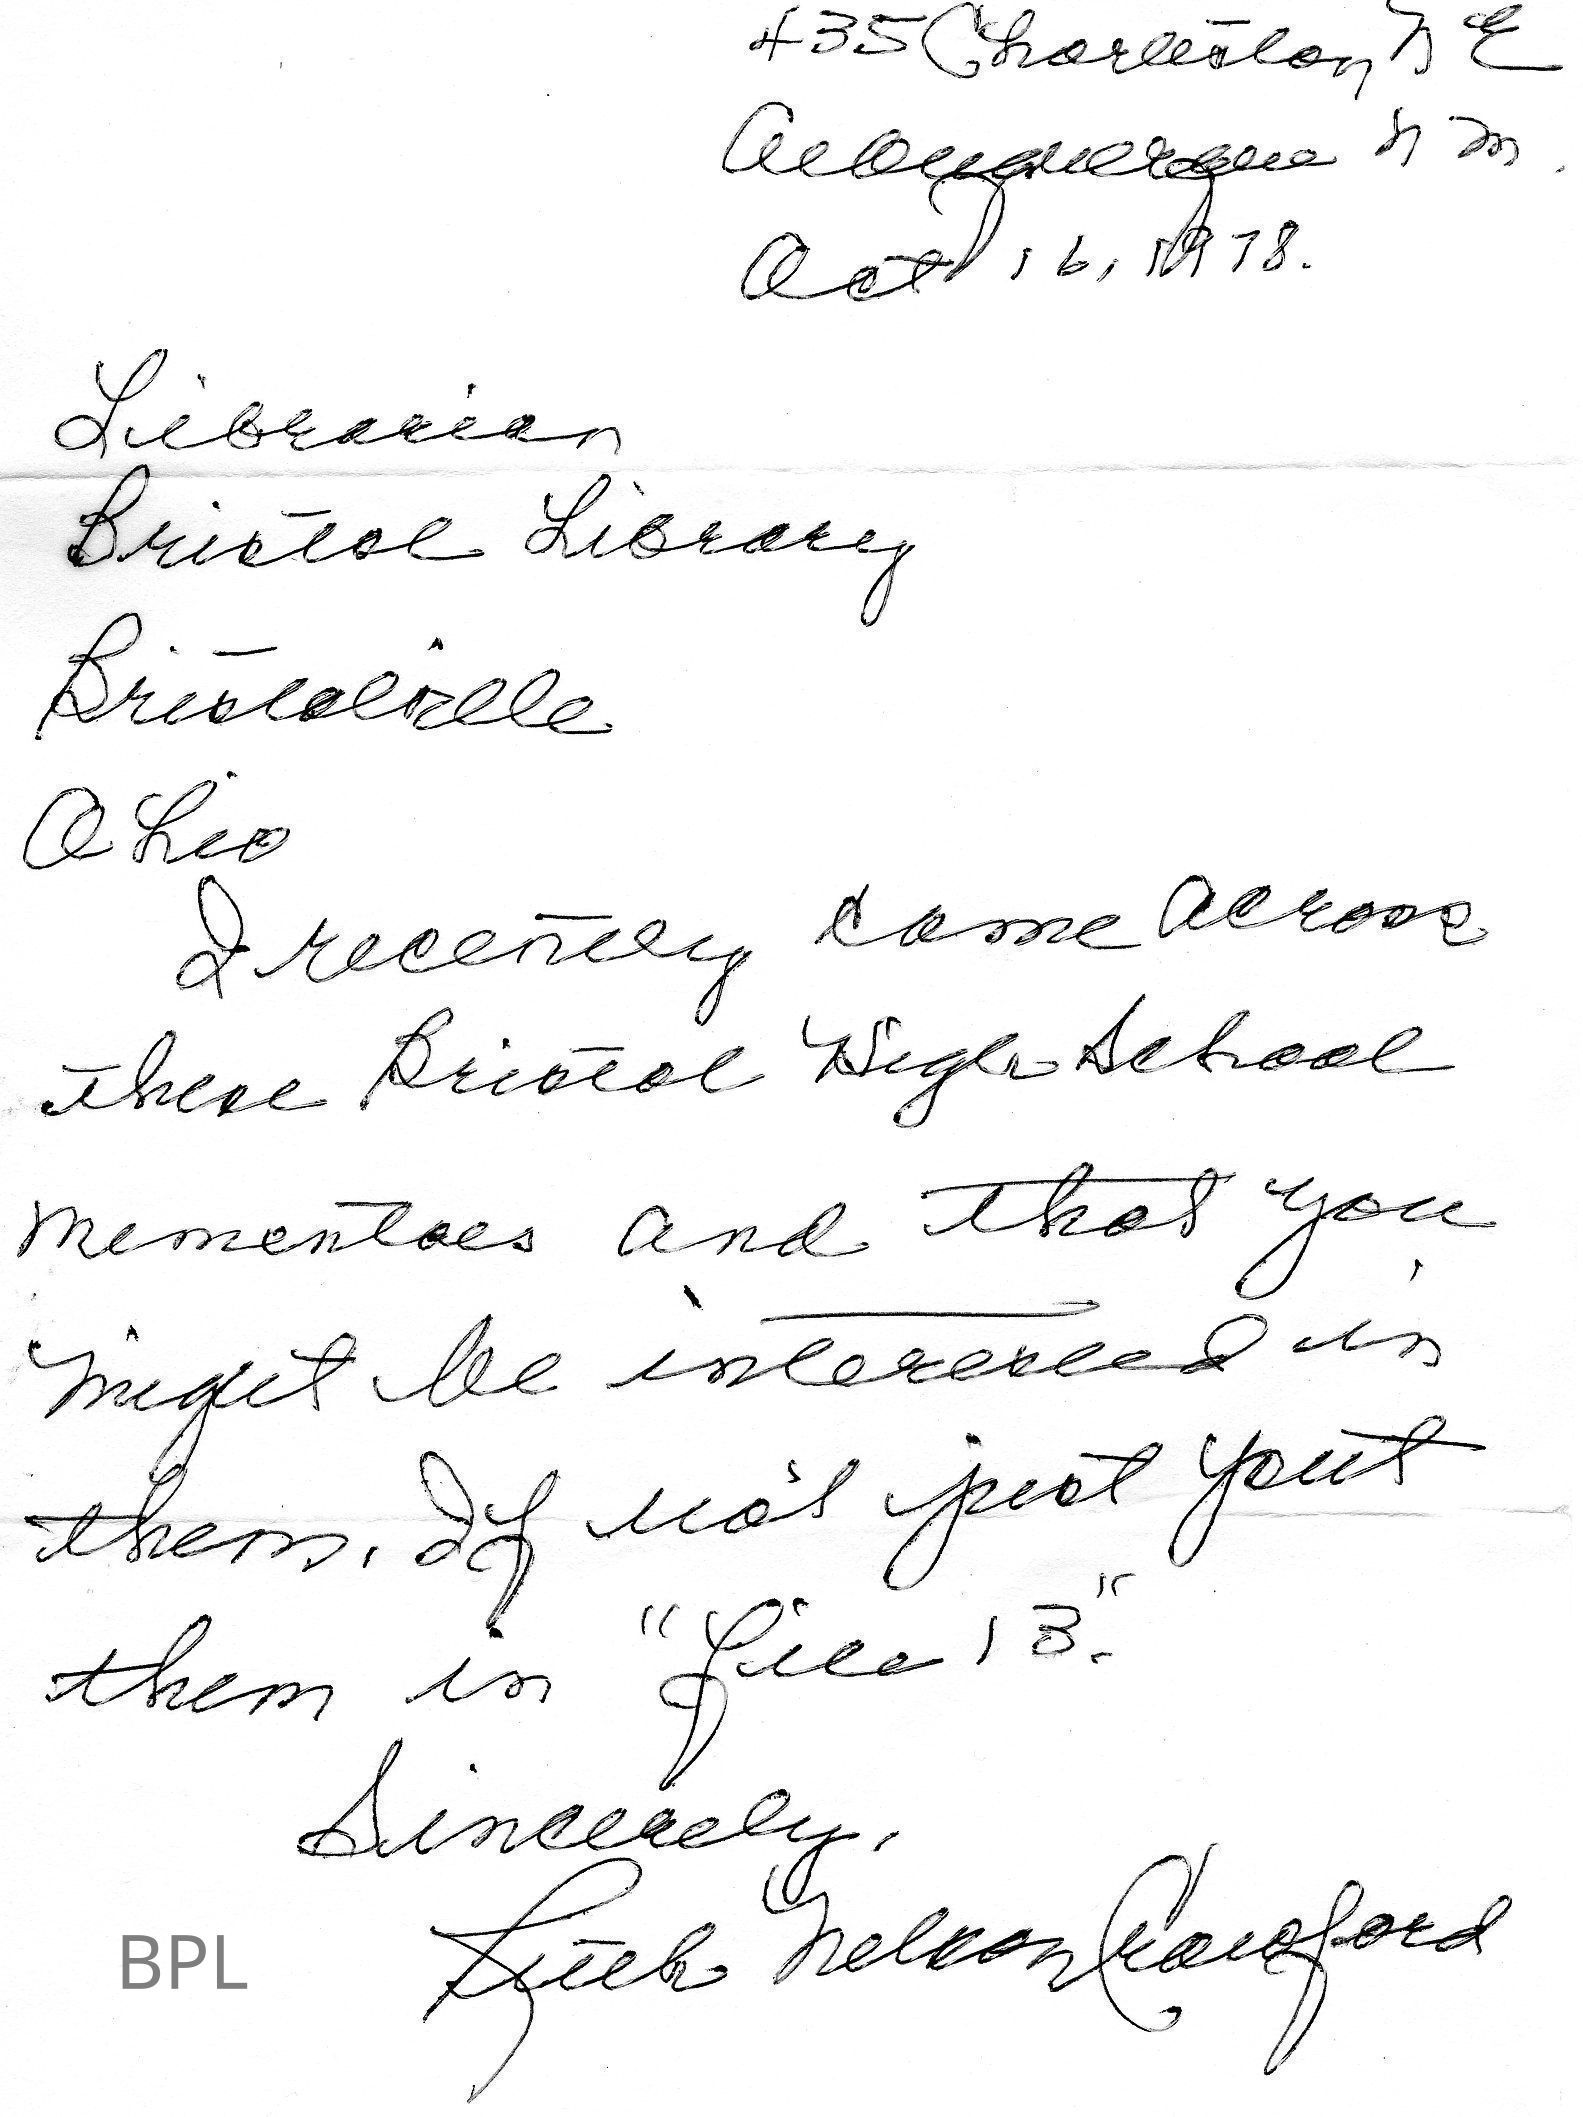 435 Charleston N E
Albuquerque N M.
Oct 16, 1978.
Librarian
Bristol Library
Bristolville
Ohio
I recently came across
these Bristol High School
mementoes and that you
might be interested in
them. If not just
them in "File 13."
Sincerely,
Ruth Nelson Crawford
BPL